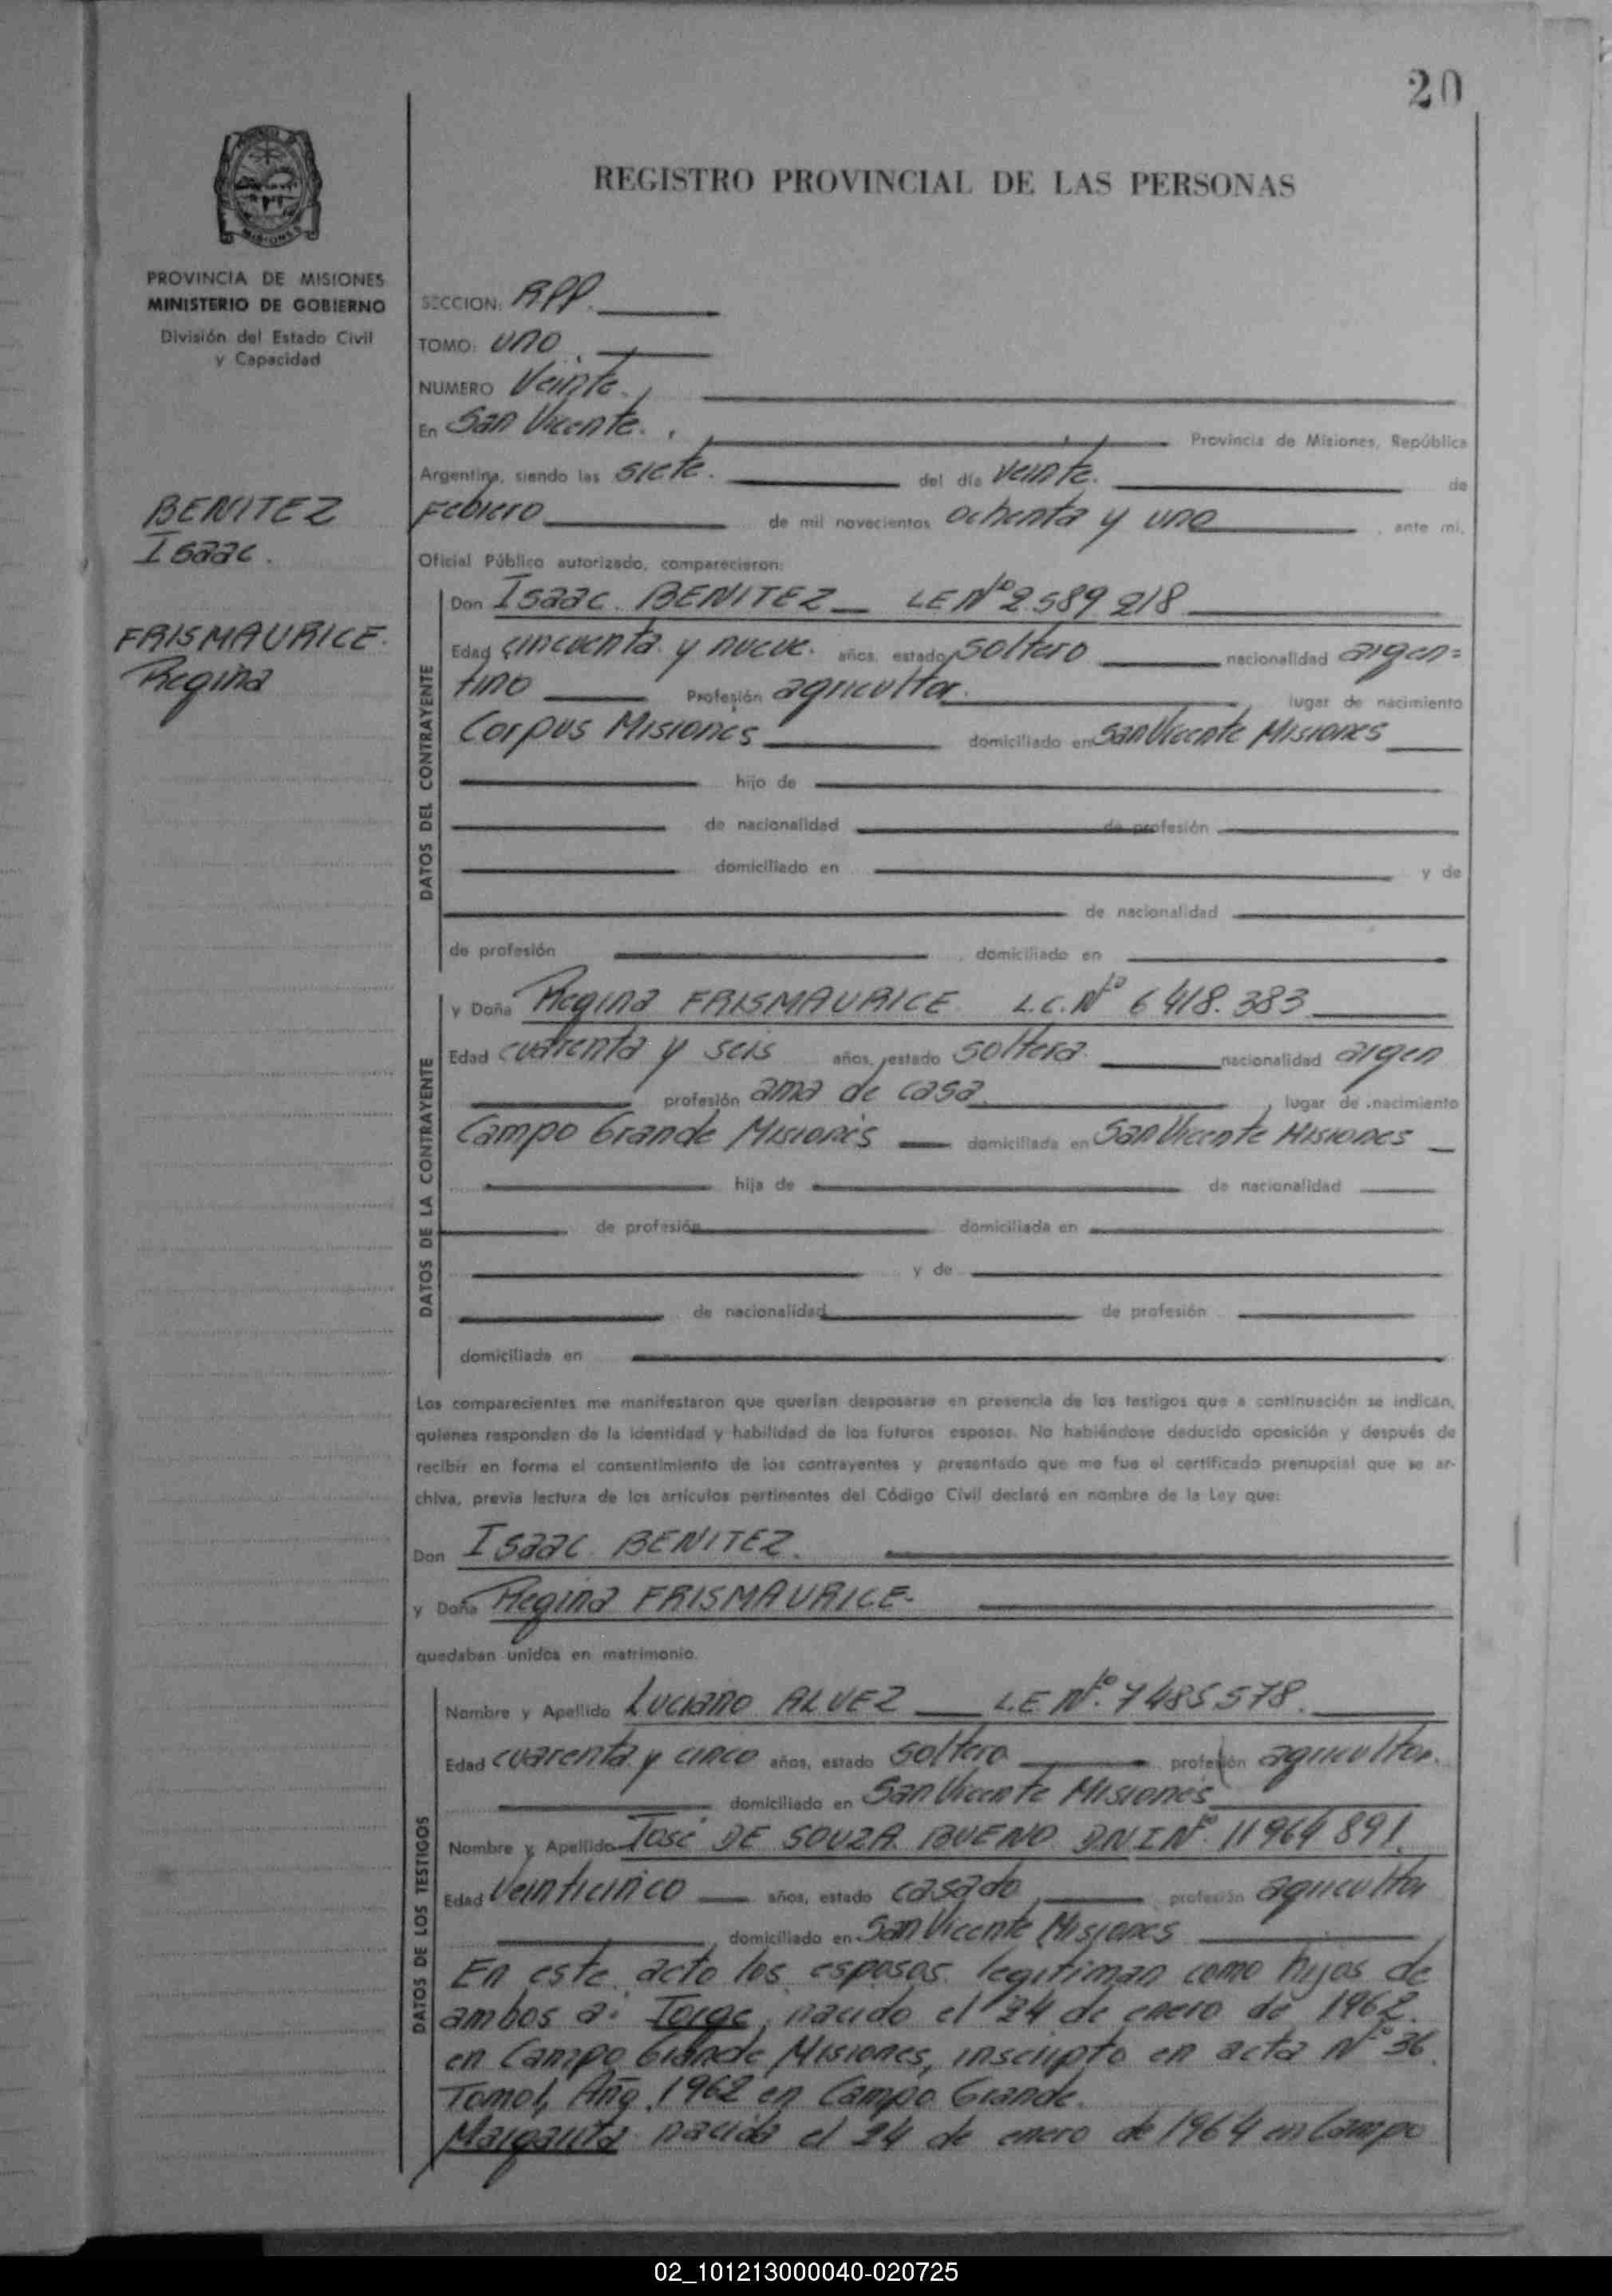 20
REGISTRO PROVINCIAL DE LAS PERSONAS
MISIONES
PROVINCIA DE MISIONES
MINISTERIO DE GOBIERNO
División del Estado Civil
y Capacidad
BENITEZ
Isaac.
FRISMAURICE.
Regina
SECCION: APP.
TOMO: uno.
NUMERO Veinte.
En San Vicente. , Provincia de Misiones, República
Argentina, siendo las siete. del día veinte. de
Febrero de mil novecientos ochenta y uno , ante mi,
Oficial Público autorizado, comparecieron:
DATOS DEL CONTRAYENTE
Don Isaac. BENITEZ LE Nº 2.589 218
Edad cincuenta y nueve. años, estado soltero nacionalidad argen=
tino Profesión agricultor. , lugar de nacimiento
Corpus Misiones domiciliado en San Vicente Misiones
hijo de
de nacionalidad de profesión
domiciliado en y de
de nacionalidad
de profesión , domiciliado en
DATOS DE LA CONTRAYENTE
y Doña Regina FRISMAURICE L.C. Nº 6 418. 383
Edad cuarenta y seis años, estado soltera. nacionalidad argen
profesión ama de casa. , lugar de nacimiento
Campo Grande Misiones domiciliada en San Vicente Misiones
hija de de nacionalidad
de profesión domiciliada en
y de
de nacionalidad de profesión
domiciliada en
Los comparecientes me manifestaron que querían desposarse en presencia de los testigos que a continuación se indican,
quienes responden de la identidad y habilidad de los futuros esposos. No habiéndose deducido oposición y después de
recibir en forma el consentimiento de los contrayentes y presentado que me fue el certificado prenupcial que se ar-
chiva, previa lectura de los artículos pertinentes del Código Civil declaré en nombre de la Ley que:
Don Isaac. BENITEZ.
y Doña Regina FRISMAURICE-
quedaban unidos en matrimonio.
DATOS DE LOS TESTIGOS
Nombre y Apellido Luciano ALVEZ LE Nº. 7485578.
Edad cuarenta y cinco años, estado soltero profesión agricultor.
domiciliado en San Vicente Misiones
Nombre y Apellido José DE SOUZA BUENO D.N.I Nº. 11964 891.
Edad veinticinco años, estado casado, profesión agricultor
domiciliado en San Vicente Misiones
En este acto los esposos legitiman como hijos de
ambos a: Jorge, nacido el 24 de enero de 1962.
en Campo Grande Misiones, inscripto en acta Nº 36.
Tomo 1, Año 1962 en Campo Grande.
Margarita nacida el 24 de enero de 1964 en Campo
02_101213000040-020725